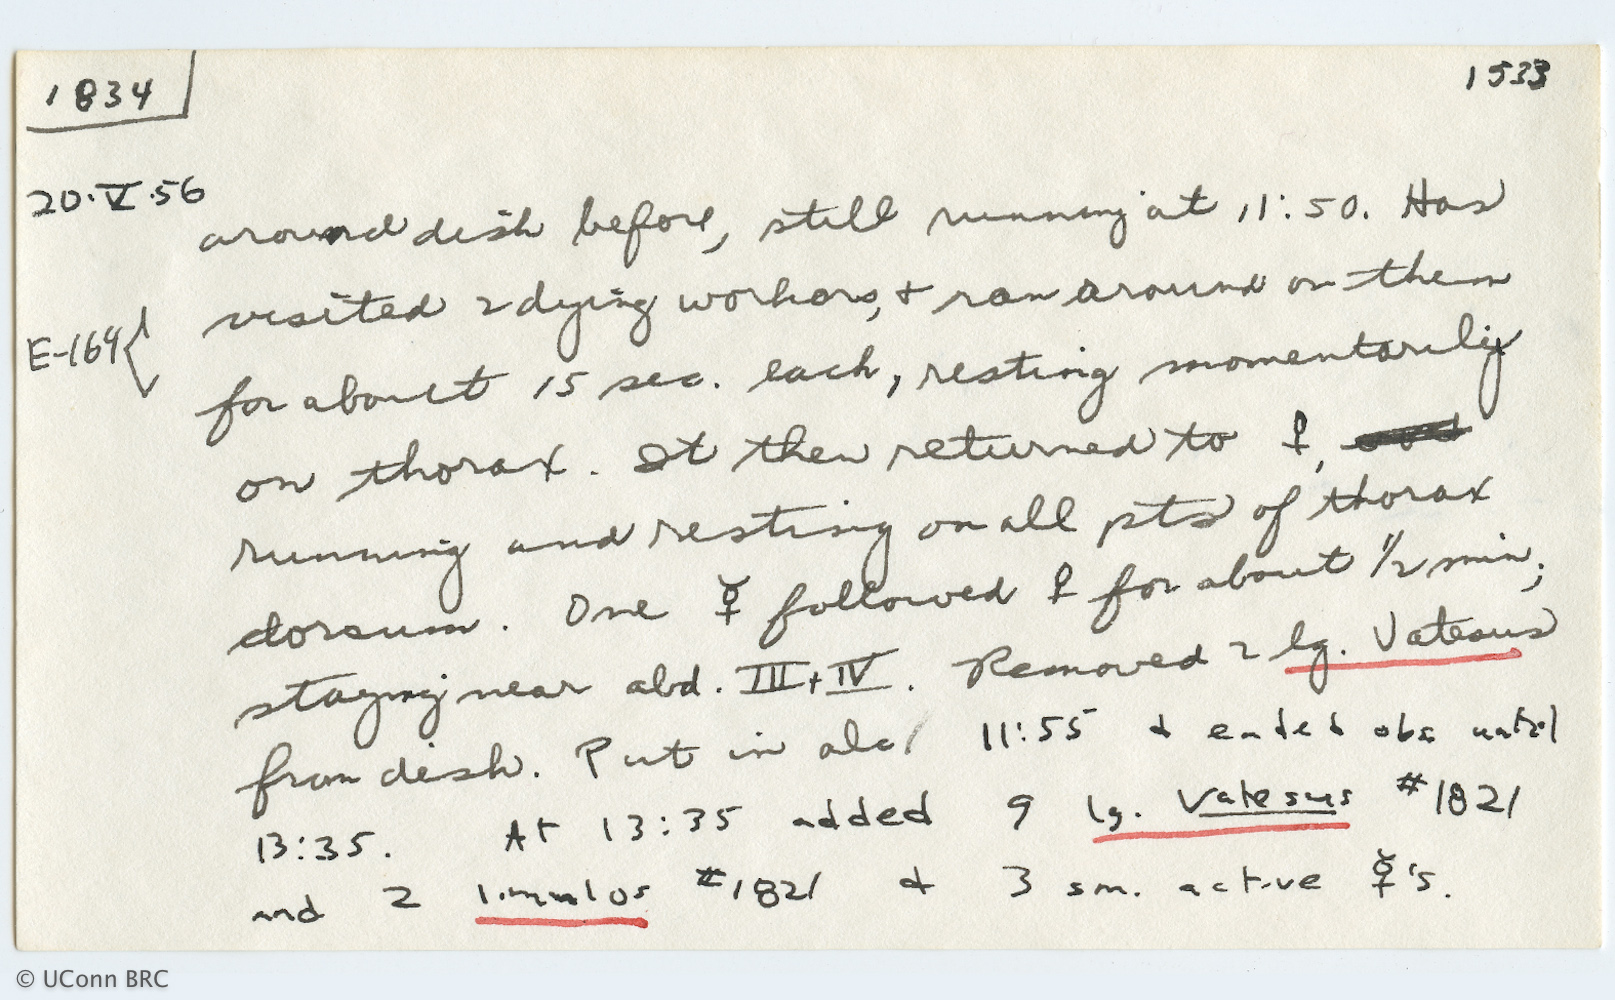 1834
1533
20·V·56
around dish before, still running at 11:50. Has
visited 2 dying workers, + ran around on them
E-164{
for about 15 sec. each, resting momentarily
on thorax. It then returned to ♀,
running and resting on all pts of thorax
dorsum. One ☿ followed ♀ for about 1/2 min;
staying near abd. III + IV. Removed 2 lg. Vatesus
from dish. Put in alc/ 11:55 & ended obs until
13:35. At 13:35 added 9 lg. Vatesus #1821
and 2 limulos #1821 & 3 sm. active ☿'s.
© UConn BRC